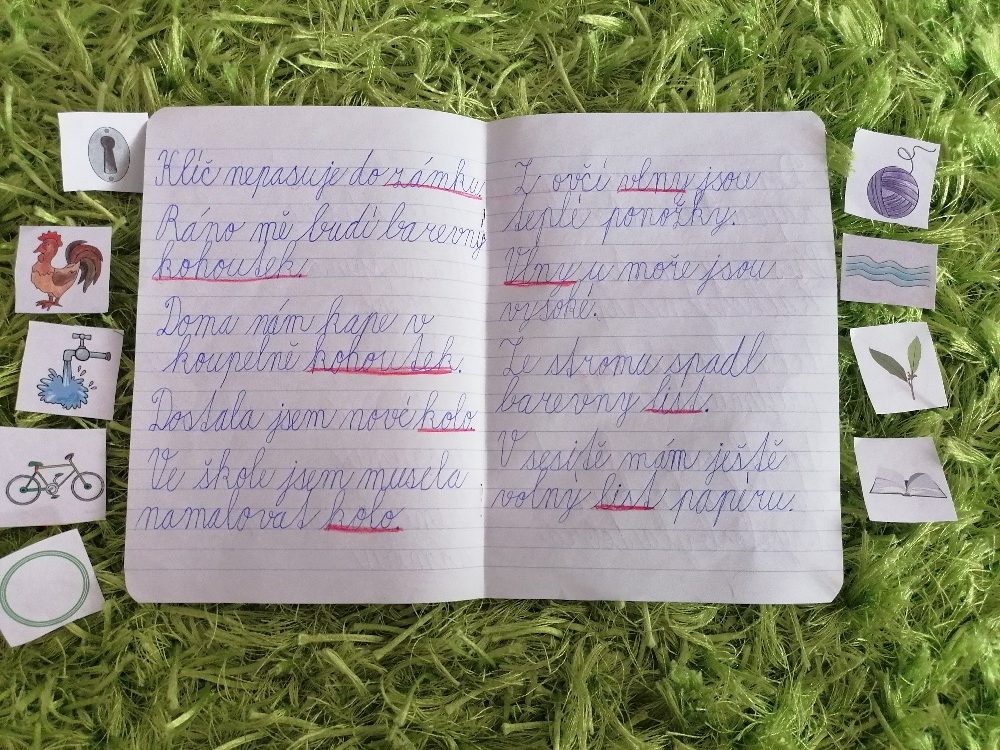 Klíč nepasuje do zámku.
Ráno mě budí barevný
kohoutek.
Doma nám kape v
koupelně kohoutek.
Dostala jsem nové kolo.
Ve škole jsem musela
namalovat kolo.
Z ovčí vlny jsou
teplé ponožky.
Vlny u moře jsou
vysoké.
Ze stromu spadl
barevny list.
V sesitě mám ještě
volný list papéru.